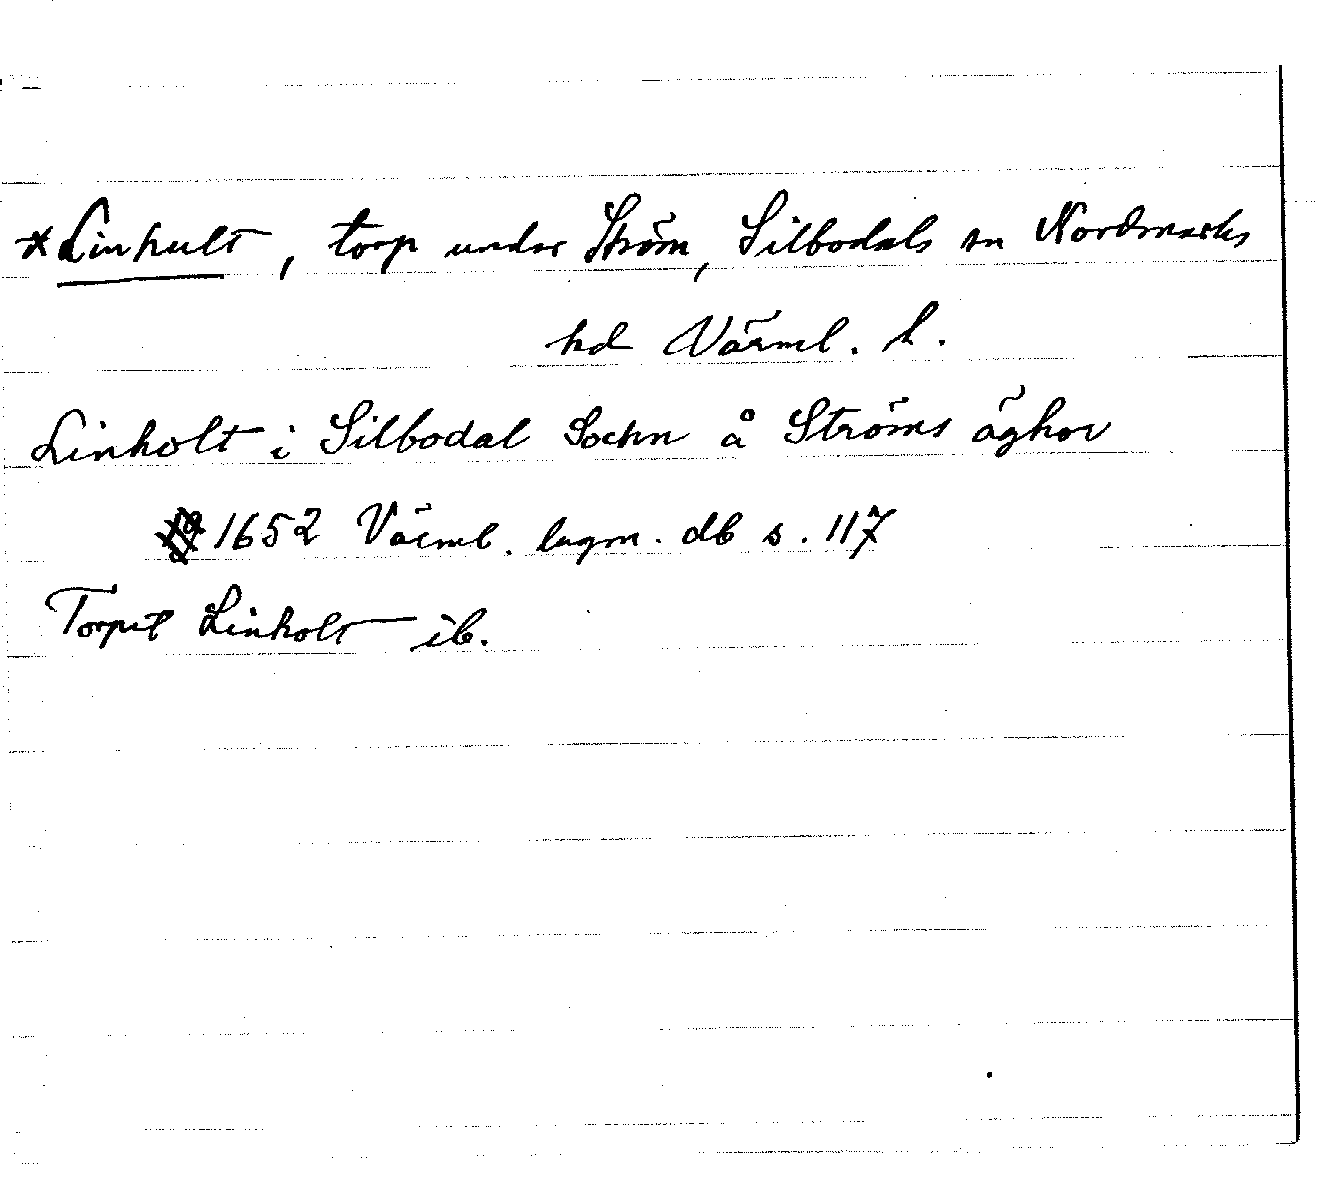 *Linhult, torp under Ström, Silbodals sn Nordmarks
hd Värml. l.
Linholt i Silbodal Sochn å Ströms äghor
1652 Värml. lagm. db s. 117
Torpet Linholt ib.